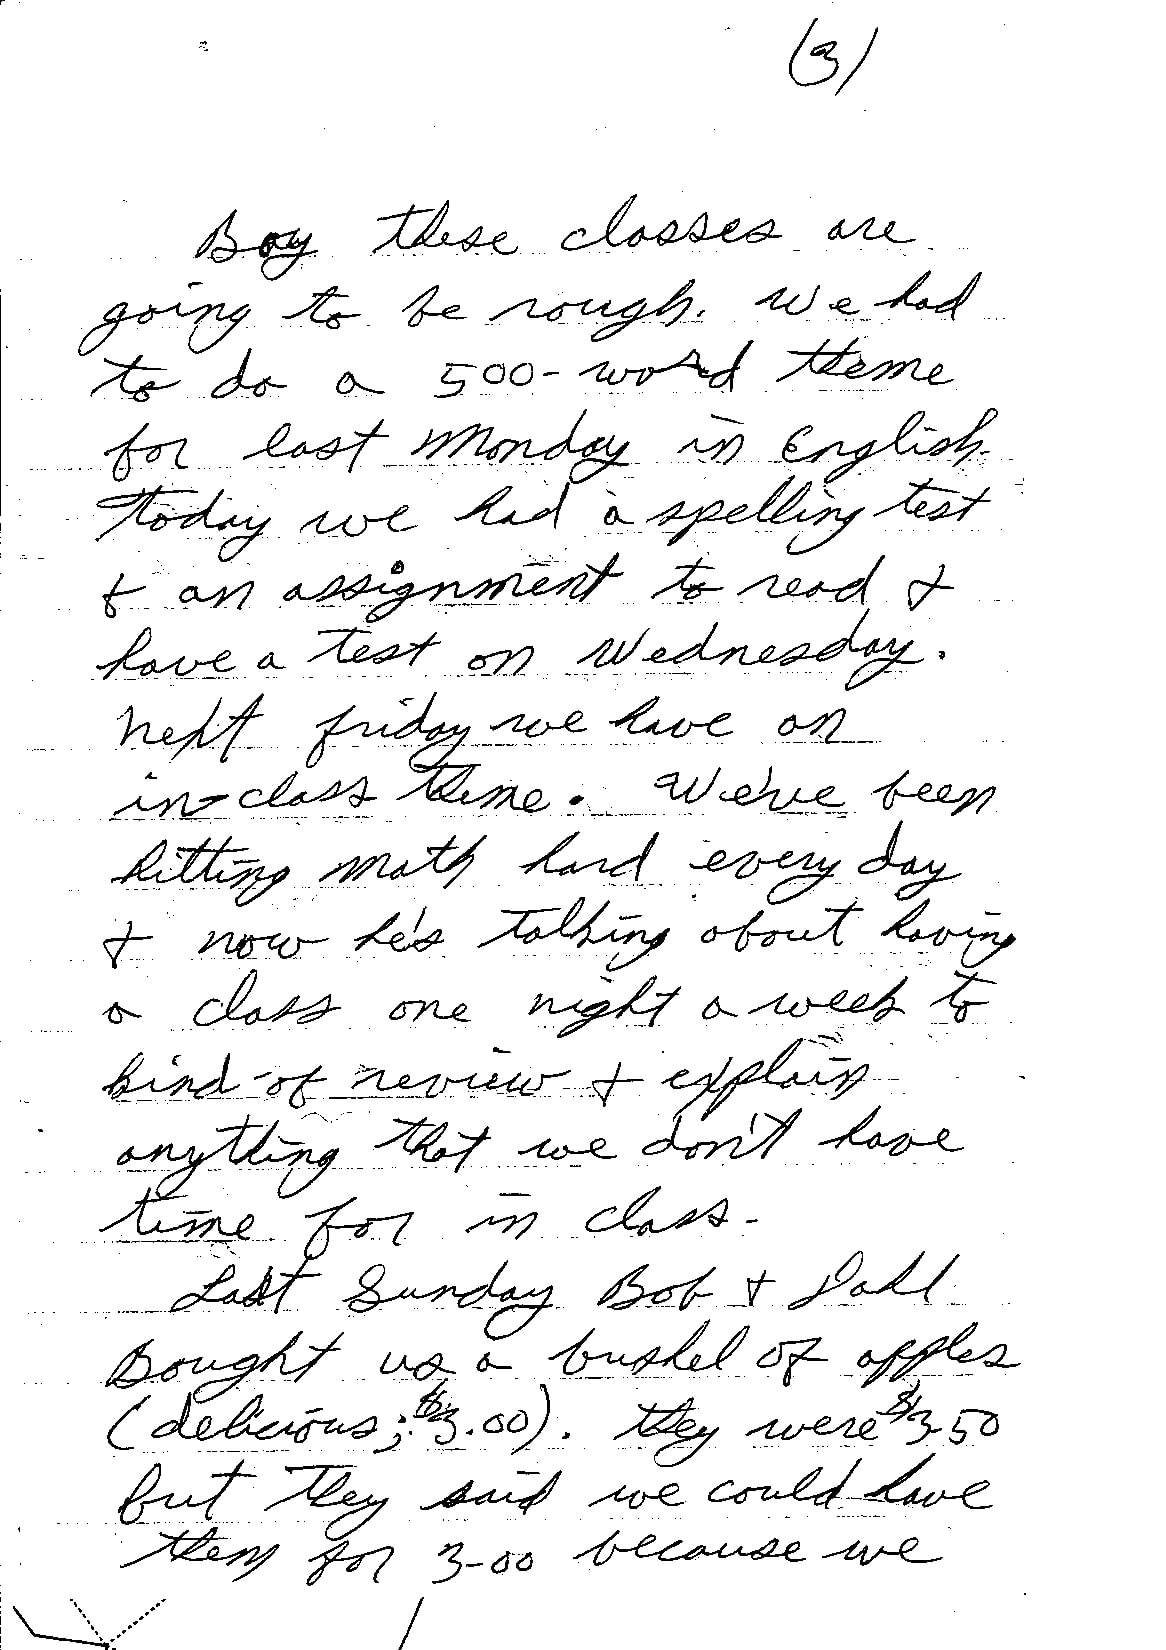 (3)
Boy these classes are
going to be rough. We had
to do a 500-word theme
for last Monday in English.
Today we had a spelling test
& an assignment to read &
have a test on Wednesday.
Next friday we have an
in-class theme. We've been
hitting math hard every day
& now he's talking about having
a class one night a week to
kind of review & explain
anything that we don't have
time for in class.
Last Sunday Bob & Dahl
Bought us a bushel of apples
(delicious; $3.00). They were $3.50
but they said we could have
them for 3.00 because we